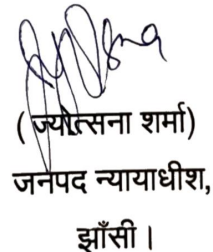 ( ज्योत्सना शर्मा)
जनपद न्यायाधीश,
झाँसी।